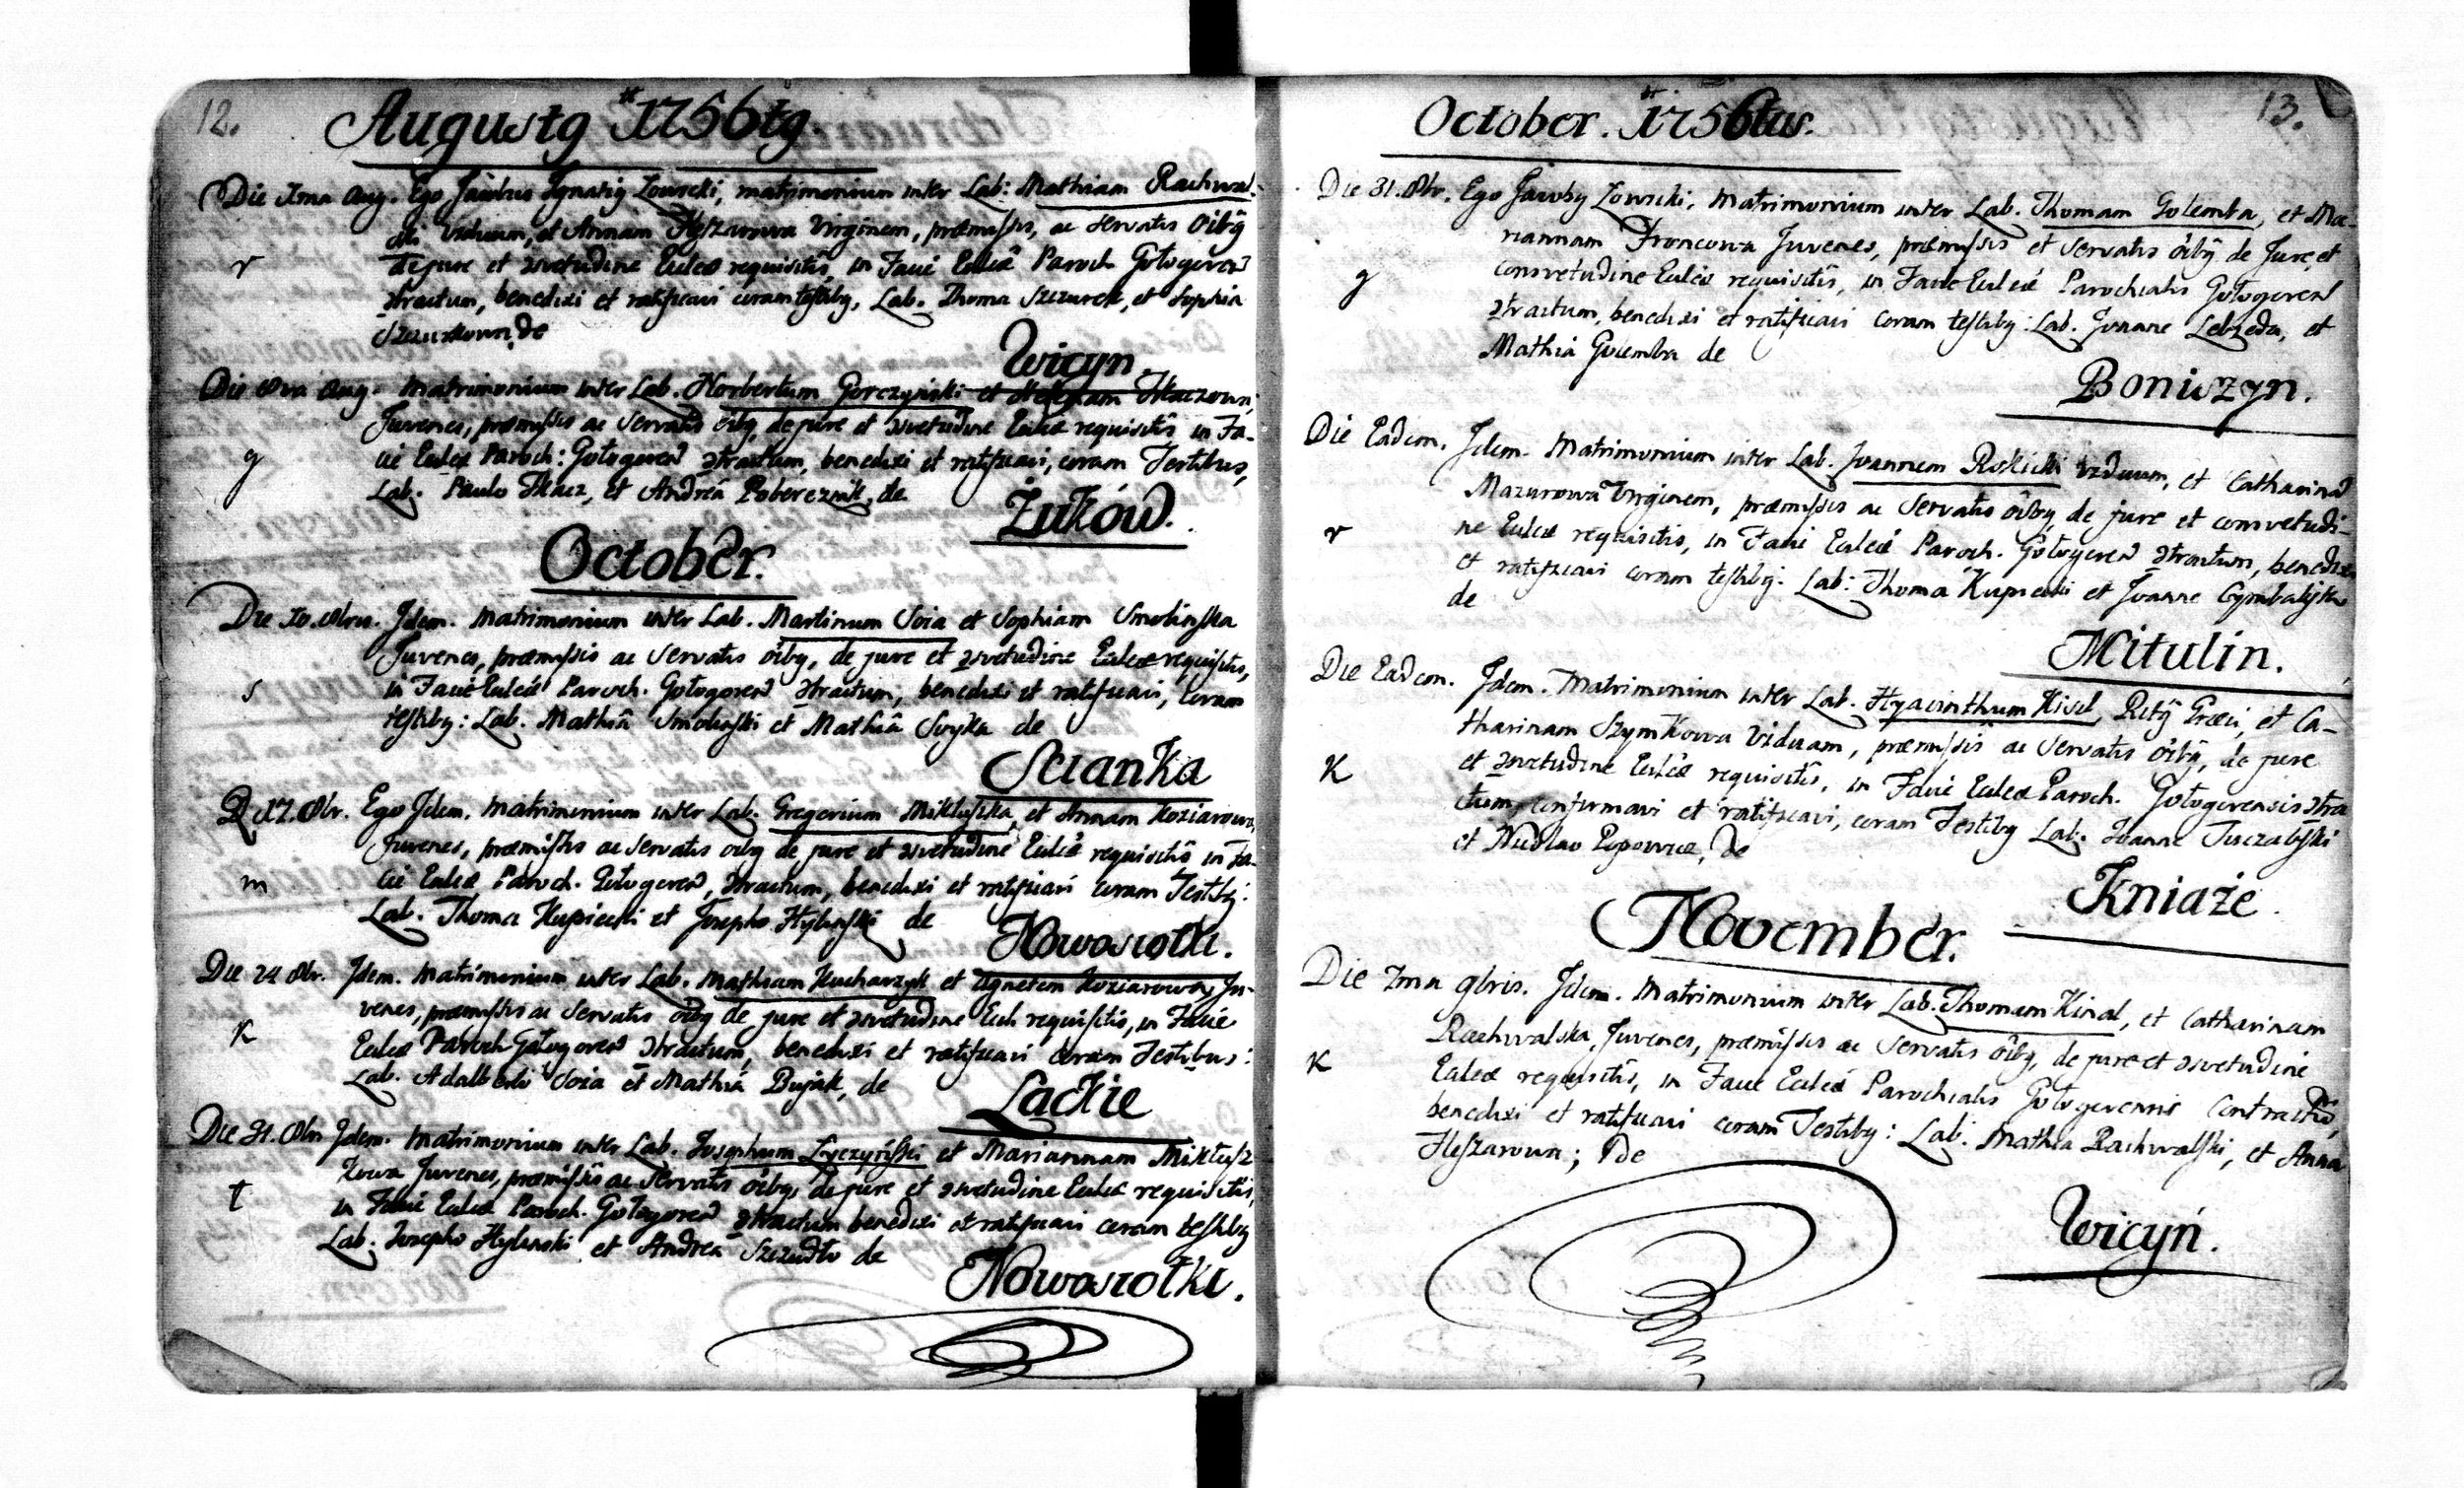 12.
Augustg 1756tg
Die 1ma Aug. Ego Jacobus Ignatig Łowicki, matrimonium inter Lab: Mathiam Rachwal-
ski Viduum, et Annam Heszarowa Virginem, præmissis, ac servatis oibg
de jure et 3svetudine Eulæ requisitis, in Facie Eulæ Paroch Gołogoren
3tractum, benedixi et ratificavi coram testibg, Lab. Thoma Szczurek, et Sophia
Szczurkowa, de
Wicyn
Die 8va Aug. Matrimonium inter Lab. Norbertum Gorczyński et Helenam Tkaczowa,
Juvenes, præmissis ac servatis oibg, de jure et 3svetudine Eulæ requisitis in Fa-
cie Eulæ Paroch: Gołogoren 3tractum, benedixi et ratificavi, coram Testibus,
Lab. Paulo Tkacz, et Andreâ Pobereznik, de
Żuków.
October.
Die 10. 8bris. Idem. Matrimonium inter Lab. Martinum Soia et Sophiam Smolinska
Juvenes, præmissis ac servatis oibg, de jure et 3svetudine Eulæ requisitis,
s
in Facie Eulæ Paroch. Gołogoren 3tractum, benedixi et ratificavi, Coram
testibg: Lab. Mathiâ Smolinski et Mathiâ Soyka de
Scianka
D. 17. 8br. Ego Idem. Matrimonium inter Lab. Gregorium Mikluszka, et Annam Koziarowa,
Juvenes, præmissis ac servatis oibg de jure et 3svetudine Eulæ requisitis in Fa-
m
cie Eulæ Paroch. Gołogoren, 3tractum, benedixi et ratificavi coram Testibg:
Lab. Thoma Kupiecki et Josepho Hylinski de
Nowosiołki.
Die 24 8br. Idem. Matrimonium inter Lab. Mathiam Kucharzyk et Agnetem Koziarowa, Ju-
venes, præmissis ac servatis oibg de jure et 3svetudine Eulæ requisitis, in Facie
K
Eulæ Paroch Gołogoren 3tractum, benedixi et ratificavi Coram Testibus:
Lab. Adalberto Soia et Mathiâ Bujak, de
Lackie
Die 31. 8br Idem. Matrimonium inter Lab. Josephum Łyczyński et Mariannam Miklusz
kowa Juvenes, præmissis ac servatis oibg, de jure et 3svetudine Eulæ requisitis,
t
in Facie Eulæ Paroch. Gołogoren 3tractum benedixi et ratificavi coram testibg
Lab. Josepho Hylinski et Andreâ Szczudło de
Nowosiołki.
13.
October. 1756tus.
Die 31. 8br. Ego Jacobg Łowicki, Matrimonium inter Lab. Thomam Golemba, et Ma-
riannam Froncowa Juvenes, præmissis et servatis oibg de Jure, et
g
consvetudine Eulæ requisitis, in Facie Eulæ Parochialis Gołogoren
3tractum, benedixi et ratificavi coram testibg: Lab. Joanne Lebzeda, et
Mathiâ Golemba de
Boniszyn.
Die Eadem. Idem. Matrimonium inter Lab. Joannem Rokicki Viduum, et Catharina
Mazurowa Virginem, præmissis ac servatis oibg, de jure et consvetudi-
r
ne Eulæ requisitis, in Facie Eulæ Paroch. Gołogoren 3tractum, benedixi
et ratificavi coram testibg: Lab: Thoma Kupiecki et Joanne Cymbalista
de
Mitulin.
Die Eadem. Idem. Matrimonium inter Lab. Hyacinthum Kisel Ritg Græci, et Ca-
tharinam Szymkowa Viduam, præmissis ac servatis oibg, de jure
K
et 3svetudine Eulæ requisitis, in Facie Eulæ Paroch. Gołogorensis 3tra
ctum, confirmavi et ratificavi, coram Testibg Lab: Joanne Turczański
et Nicolao Popowicz, de
Kniaże.
November.
Die 7ma 9bris. Idem. Matrimonium inter Lab. Thomam Kinal, et Catharinam
Rachwalska, Juvenes, præmissis ac servatis oibg, de jure et 3svetudine
K
Eulæ requisitis, in Facie Eulæ Parochialis Gołogorensis Contractũ,
benedixi et ratificavi coram Testibg: Lab: Mathia Rachwalski, et Anna
Heszarowa; de
Wicyń.